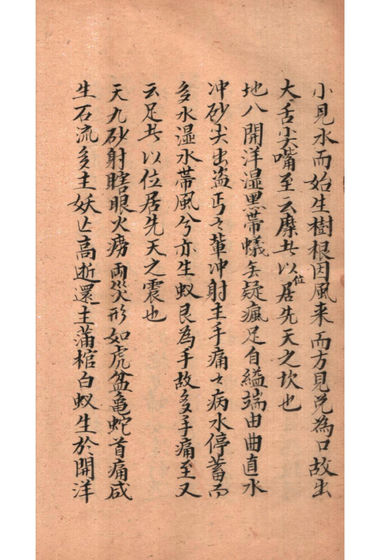 小見水而始生樹根因風来而方見兑為口故出
大舌尖嘴至云摩其以位居先天之坎也
地八開洋湿黑帶蟻矣疑瘋足自縊端由曲直水
冲砂尖出盗丐之輩冲射主手痛之病水停蓄而
多水湿水帶風兮亦生蚁艮為手故多手痛至又
云足其以位居先天之震也
天九砂射瞎眼火癆両災形如虎盆亀蛇首痛咸
生石流多主妖亡高逝還主蒲棺白蚁生於開洋